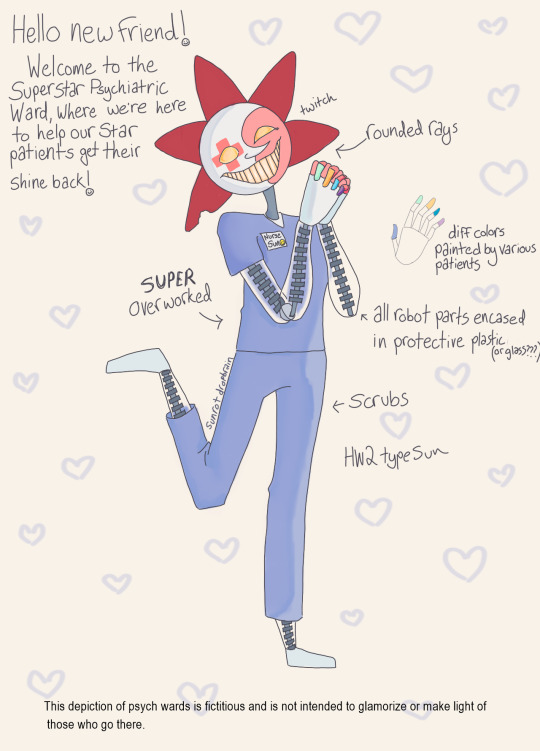 Hello new friend!
Welcome to the
Superstar Psychiatric
Ward, where we're here
to help our Star
patients get their
shine back!
twitch
rounded rays
diff colors
painted by various
patients
Nurse
Sun
SUPER
overworked
all robot parts encased
in protective plastic
(or glass???)
sunrot dropbrain
Scrubs
HW2 type Sun
This depiction of psych wards is fictitious and is not intended to glamorize or make light of
those who go there.